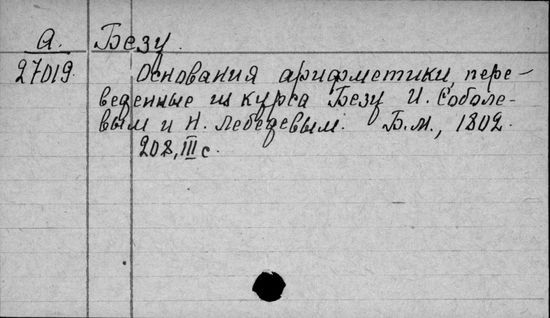 А. Безу.
27019. Основания арифметики, пере-
веденные из курса Безу И. Соболе-
вым и Н. Лебедевым. Б.м., 1802.
208, III с.